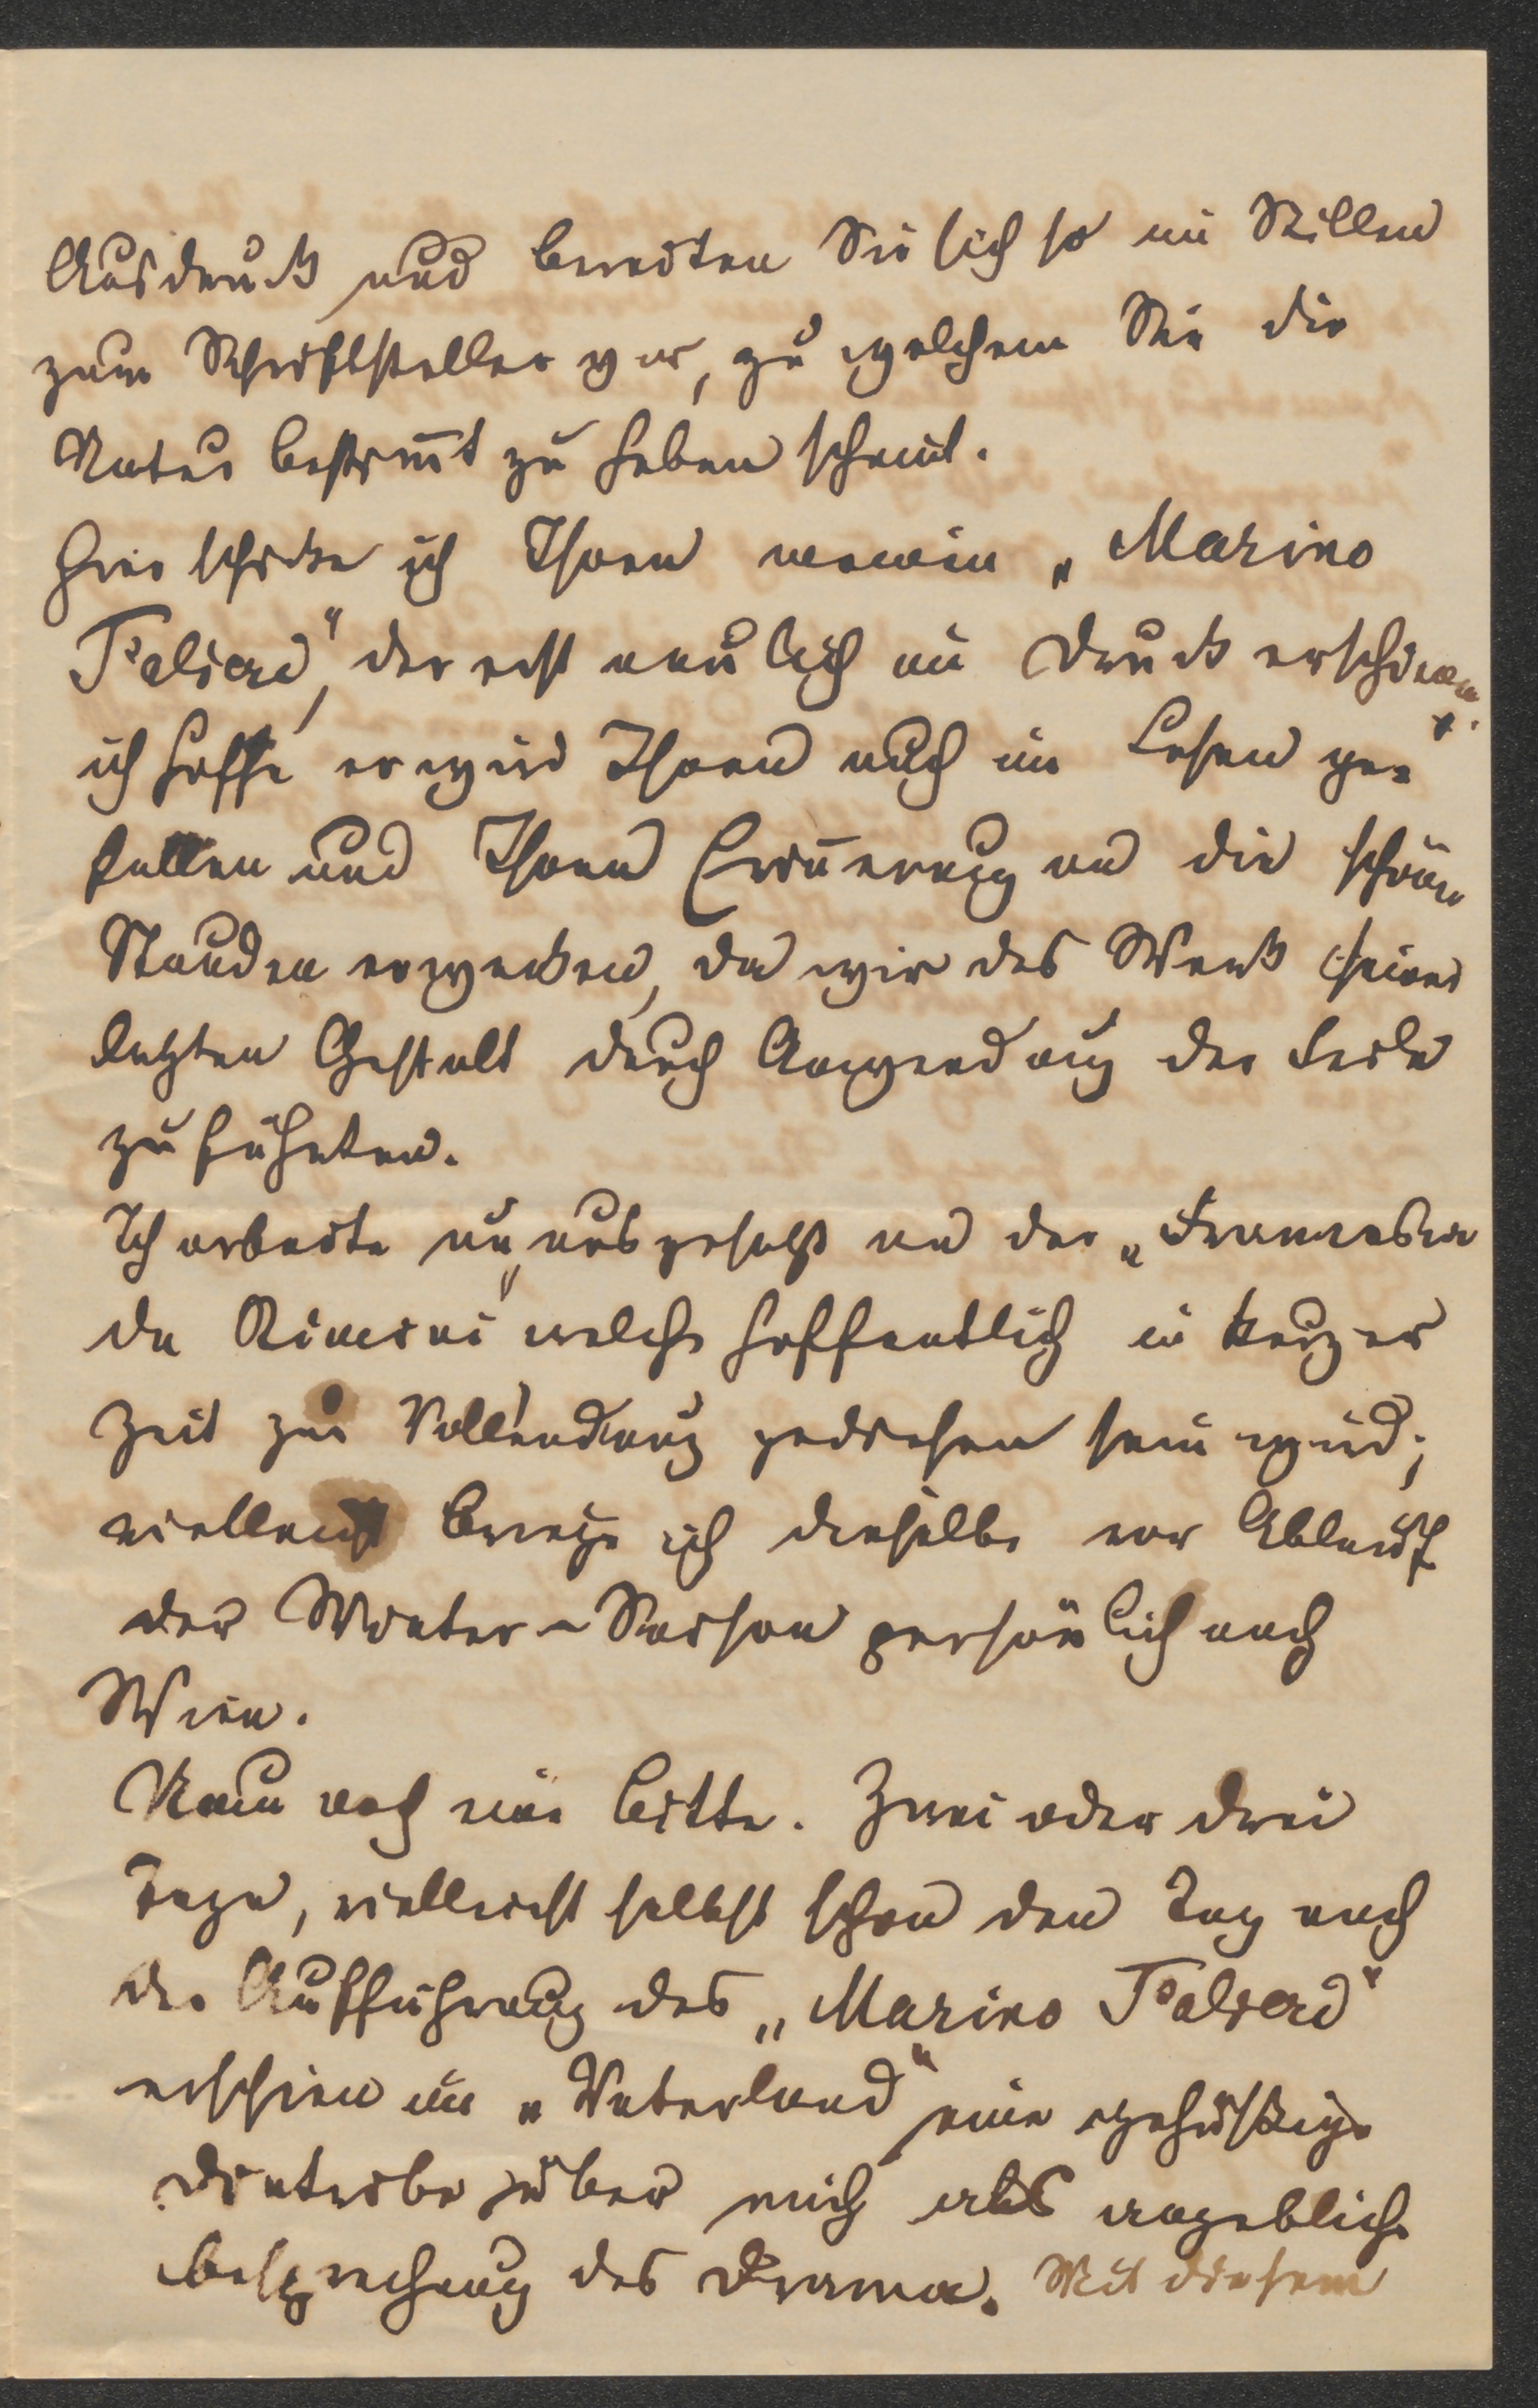 Ausdruck und bereiten Sie sich so im Stillen
zum Schriftsteller vor, zu welchem Sie die
Natur bestim̅t zu haben scheint.
Hier schicke ich Ihnen meinen „Marino
Falieri“, der erst neulich im Druck erschienen
ich hoffe er wird Ihnen auch im Lesen ge-
fallen und Ihnen Erin̅erung an die schönen
Stunden erwecken, da wir das Werk seiner
letzten Gestalt durch Anwendung der Feile
zuführten.
Ich arbeite nun unausgesetzt an der „Francesca
da Rimini“ welche hoffentlich in kurzer
Zeit zur Vollendung gediehen sein wird;
vielleicht bringe ich dieselbe vor Ablauf
der Winter-Saison persönlich nach
Wien.
Nun noch eine Bitte. Zwei oder drei
Tage, vielleicht selbst schon den Tag nach
der Aufführung des „Marino Falieri“
erschien im „Vaterland“ eine gehässige
Diatribe über mich als angebliche
Besprechung des Drama. Mit diesem